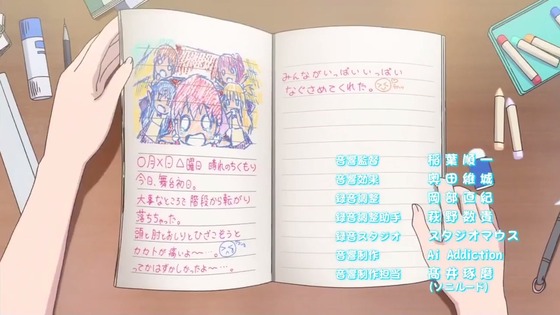 〇月×日△曜日 晴れのちくもり
今日、舞台初日。
大事なところで階段から転がり
落ちちゃった。
頭と肘とおしりとひざこぞうと
カカトが痛いよ〜…。
ってかはずかしかったよ〜…。
みんながいっぱいいっぱい
なぐさめてくれた。
音響監督 稲葉順一
音響効果 奥田維城
録音調整 岡部直紀
録音調整助手 荻野政道
録音スタジオ スタジオマウス
音響制作 Ai Addiction
音響制作担当 髙井琢磨
(ソニルード)